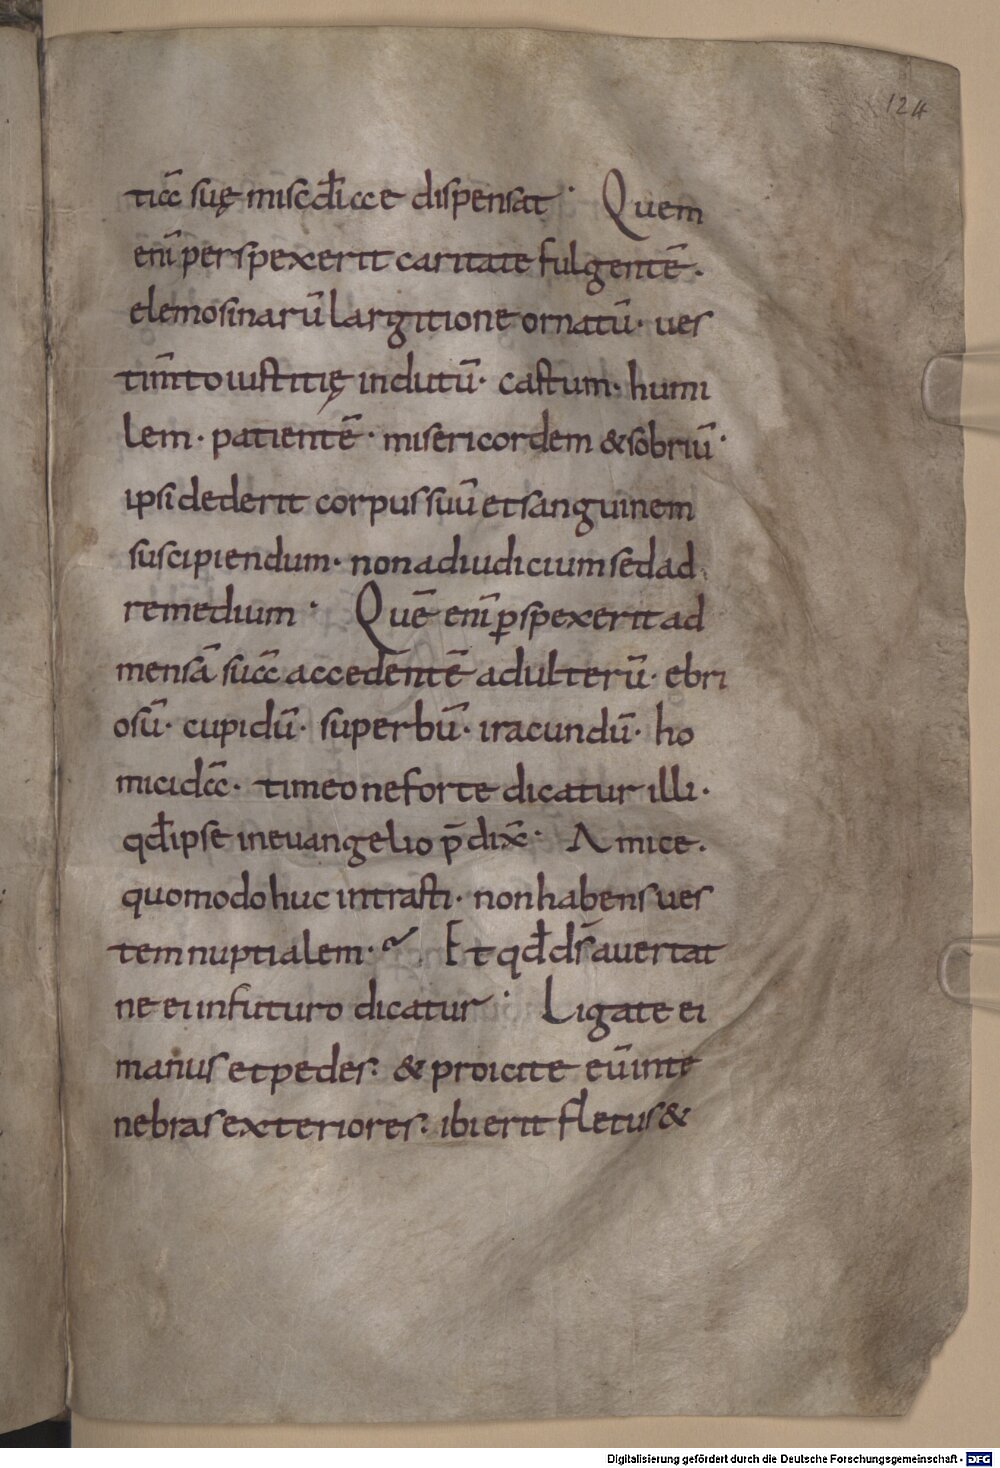 124
tiā suę misc̄diae dispensat · Quem
eni᷑ perspexerit caritate fulgentē ·
elemosinarū largitione ornatū · ues
tim̄to iustitię indutū · castum · humi
lem · patientē · misericordem & sobriū ·
ipsi dederit corpus suū et sanguinem
suscipiendum · non ad iudicium sed ad
remedium · Quē enī ꝑspexerit ad
mensā suā accedentē adulterū · ebri
osū · cupidū · superbū · iracundū · ho
micidā · timeo ne forte dicatur illi ·
qđ ipse in euangelio p̄dix̄ · Amice ·
quomodo huc intrasti · non habens ues
tem nuptialem · Et qđ dn̄s auertat
ne ei in futuro dicatur · Ligate ei
manus et pedes · & proicite eū in te
nebras exteriores · ibi erit fletus &
Digitalisierung gefördert durch die Deutsche Forschungsgemeinschaft - DFG